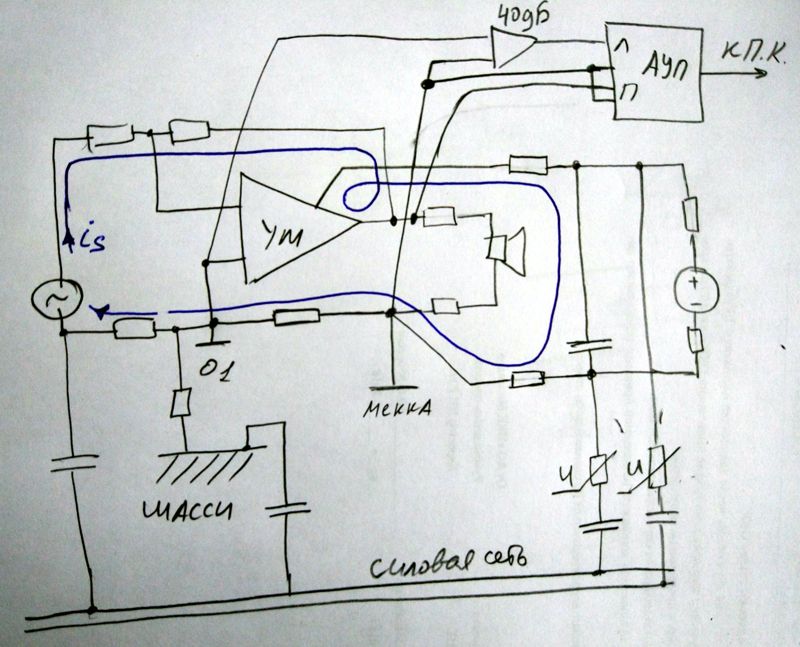 40дБ
Л
П
АУП
К П.К.
УМ
is
~
+
-
01
МЕККА
ШАССИ
И
И
силовая сеть